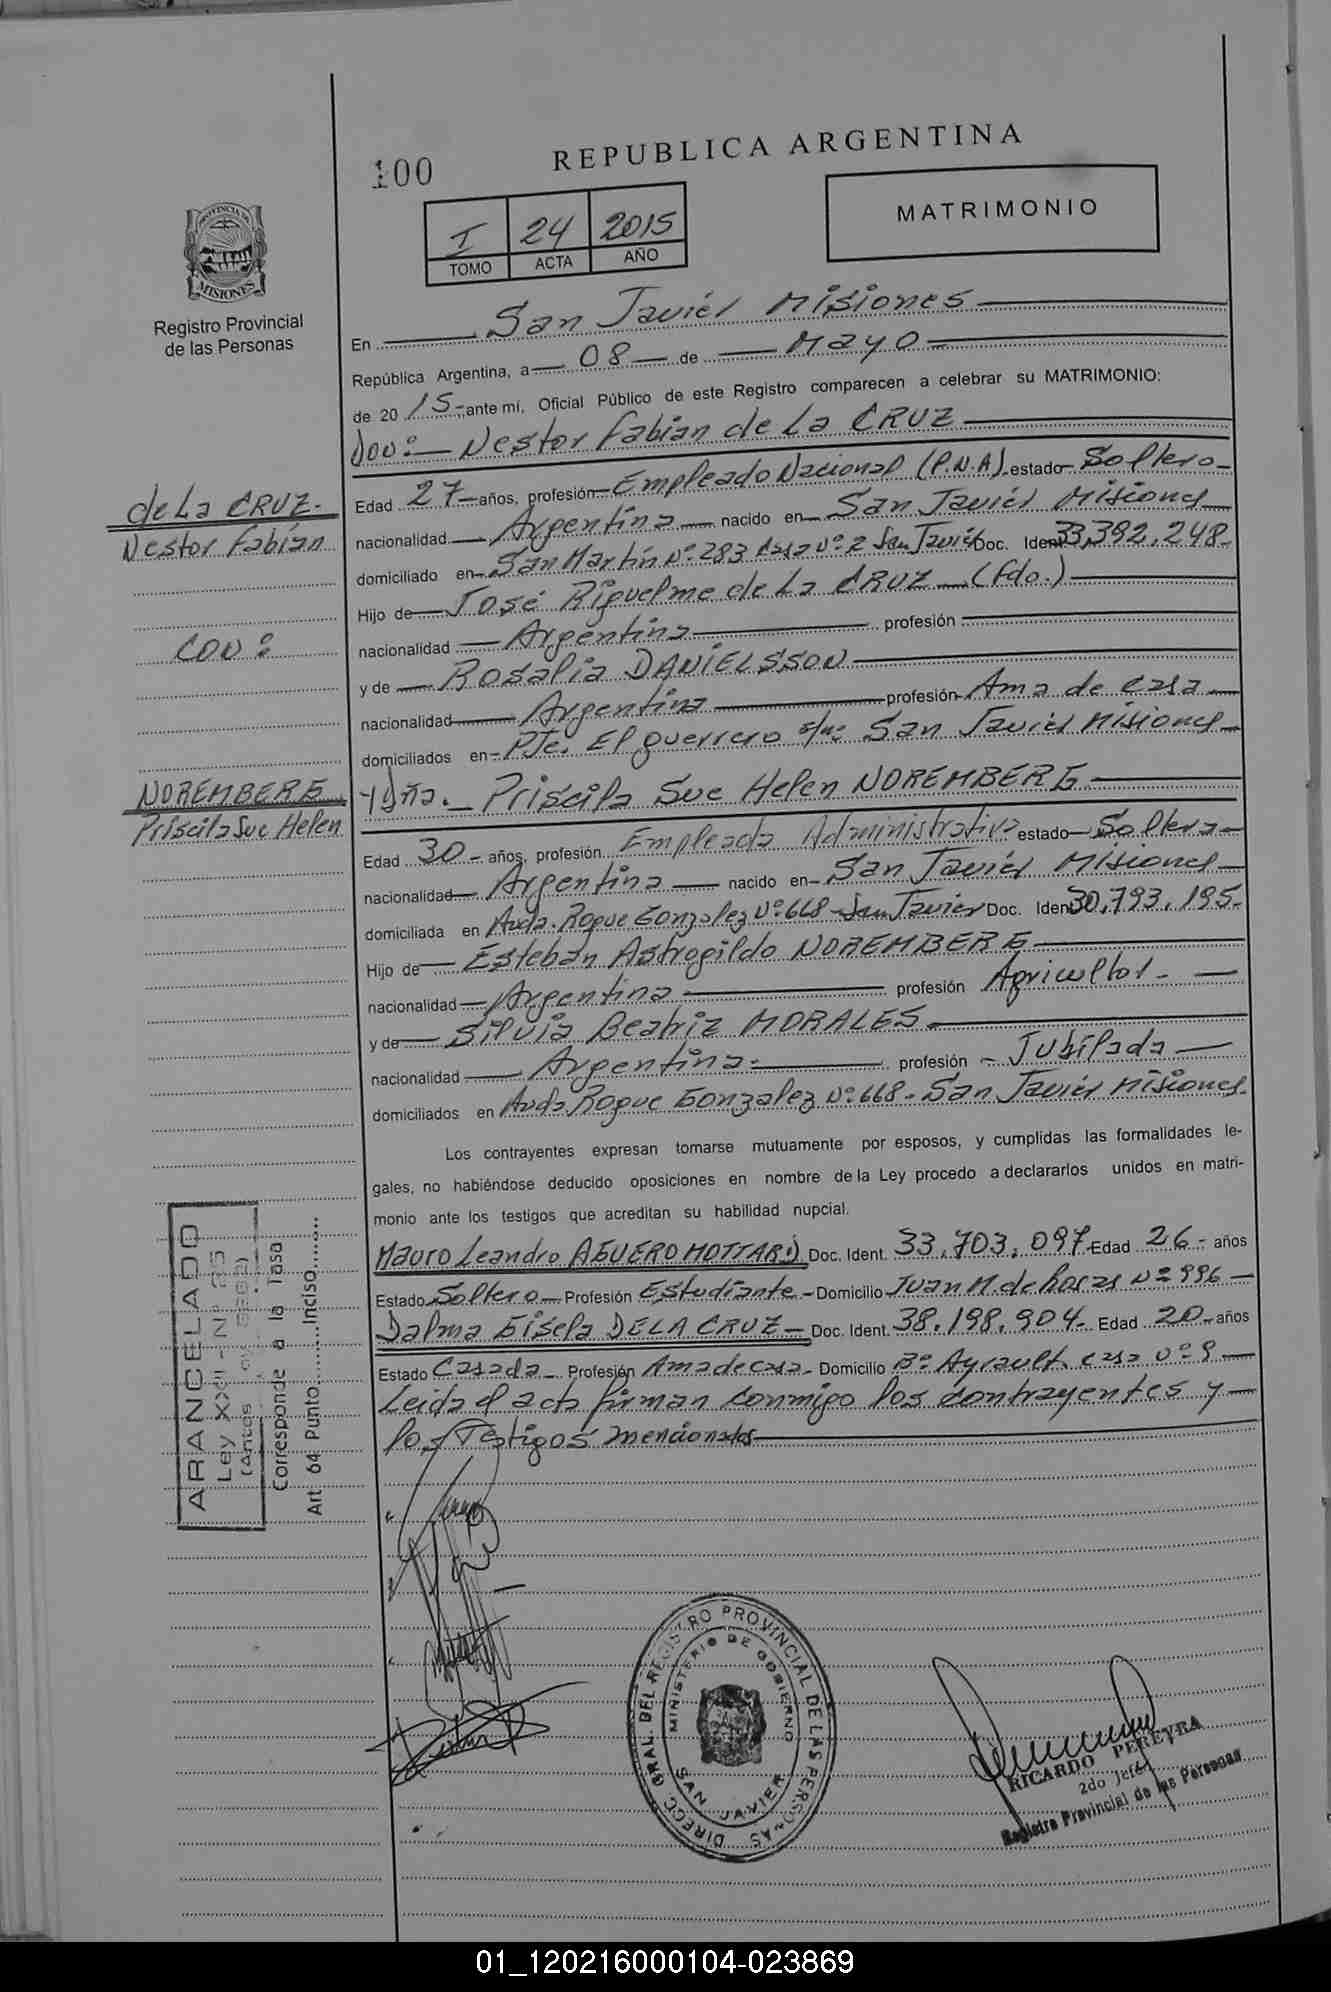 REPUBLICA ARGENTINA
100
I 24 2015
TOMO ACTA AÑO
MATRIMONIO
PROVINCIA DE
MISIONES
Registro Provincial
de las Personas
En San Javier Misiones
República Argentina, a 08 de Mayo
de 20 15 ante mí, Oficial Público de este Registro comparecen a celebrar su MATRIMONIO:
Don: Nestor Fabian de La CRUZ
Edad 27 años, profesión Empleado Nacional (P.N.A) estado Soltero
nacionalidad Argentina nacido en San Javier Misiones
domiciliado en San Martín Nº 283 Casa Nº 2 San Javier Doc. Ident 33,392,248
Hijo de José Riquelme de La CRUZ (fdo.)
nacionalidad Argentina profesión
y de Rosalia DANIELSSON
nacionalidad Argentina profesión Ama de casa
domiciliados en PJe. El guerrero s/nº San Javier Misiones
y Dña. Priscila Sue Helen NOREMBERG
Edad 30 años, profesión Empleada Administrativa estado Soltera
nacionalidad Argentina nacido en San Javier Misiones
domiciliada en Avda. Roque Gonzalez Nº 668 San Javier Doc. Iden 30,793,195
Hijo de Esteban Astrogildo NOREMBERG
nacionalidad Argentina profesión Agricultor
y de Silvia Beatriz MORALES
nacionalidad Argentina profesión Jubilada
domiciliados en Avda Roque Gonzalez Nº 668 San Javier Misiones
Los contrayentes expresan tomarse mutuamente por esposos, y cumplidas las formalidades le-
gales, no habiéndose deducido oposiciones en nombre de la Ley procedo a declararlos unidos en matri-
monio ante los testigos que acreditan su habilidad nupcial.
Mauro Leandro AGUERO MOTTARD Doc. Ident. 33,703,097 Edad 26 años
Estado Soltero Profesión Estudiante Domicilio Juan M. de Rosas Nº 996
Dalma Gisela DE LA CRUZ Doc. Ident. 38,198,904 Edad 20 años
Estado Casada Profesión Ama de casa Domicilio Bº Ayrault casa Nº 9
Leida el acta firman conmigo los contrayentes y
los Testigos mencionados
de La CRUZ
Nestor Fabián
CON:
NOREMBERG
Priscila Sue Helen
ARANCELADO
Ley XXII - Nº 25
(Antes
Corresponde a la Tasa
Art 64 Punto Inciso
DIRECC. GRAL. DEL REGISTRO PROVINCIAL DE LAS PERSONAS
MINISTERIO DE GOBIERNO
SAN JAVIER
RICARDO PEREYRA
2do Jefe
Registro Provincial de las Personas
01_120216000104-023869